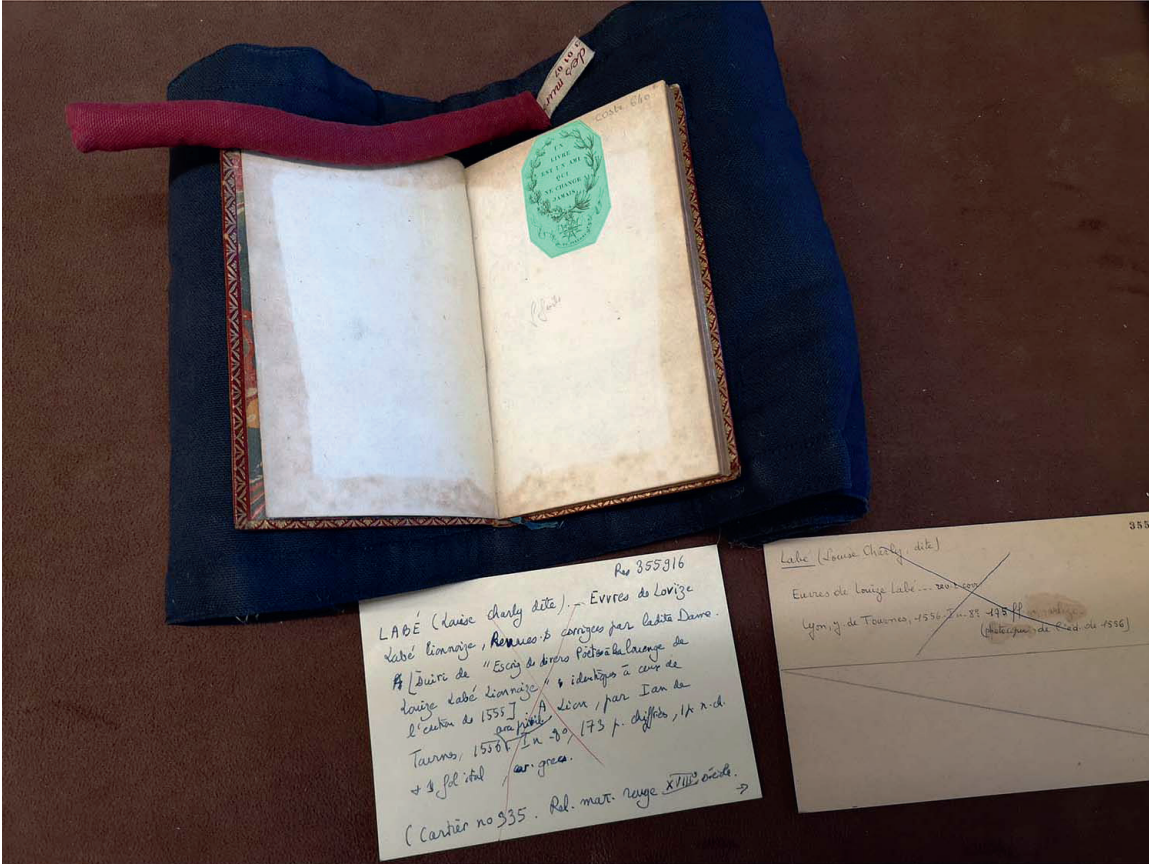 des mur
coste 640
UN
LIVRE
EST UN AMI
QUI
NE CHANGE
JAMAIS
Res 355916
LABÉ (Louise Charly dite). _ Evvres de Lovïze
Labé lionnoize, Revues & corrigees par ladite Dame.
[Suivi de "Escriz de divers Poëtes à la louenge de
Louïze Labé Lionnoize" identiques à ceux de
l'édition de 1555]. A Lion, par Ian de
Tournes, 1556, In-8°, 173 p. chiffrées, 1 p. n. ch.
avec privil.
+ 1 fol ital car. grecs.
(Cartier no 335. Rel. mar. rouge XVIIIe siècle.
→
355
Labé (Louise Charly, dite)
Euvres de Louïze Labé
Lyon, J. de Tournes, 1556. In-8° 175 ff
de l'éd. de 1556]